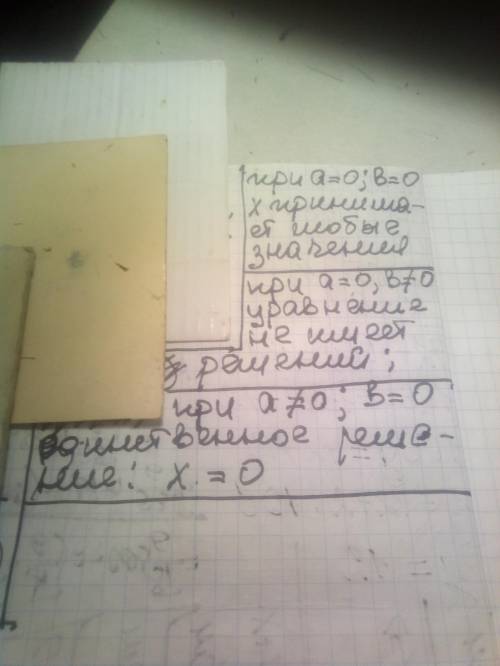 при a=0; в=0
x принима-
ет любые
значения
при a=0, в≠0
уравнение
не имеет
решений;
при a≠0; в=0
единственное реше-
ние: x = 0